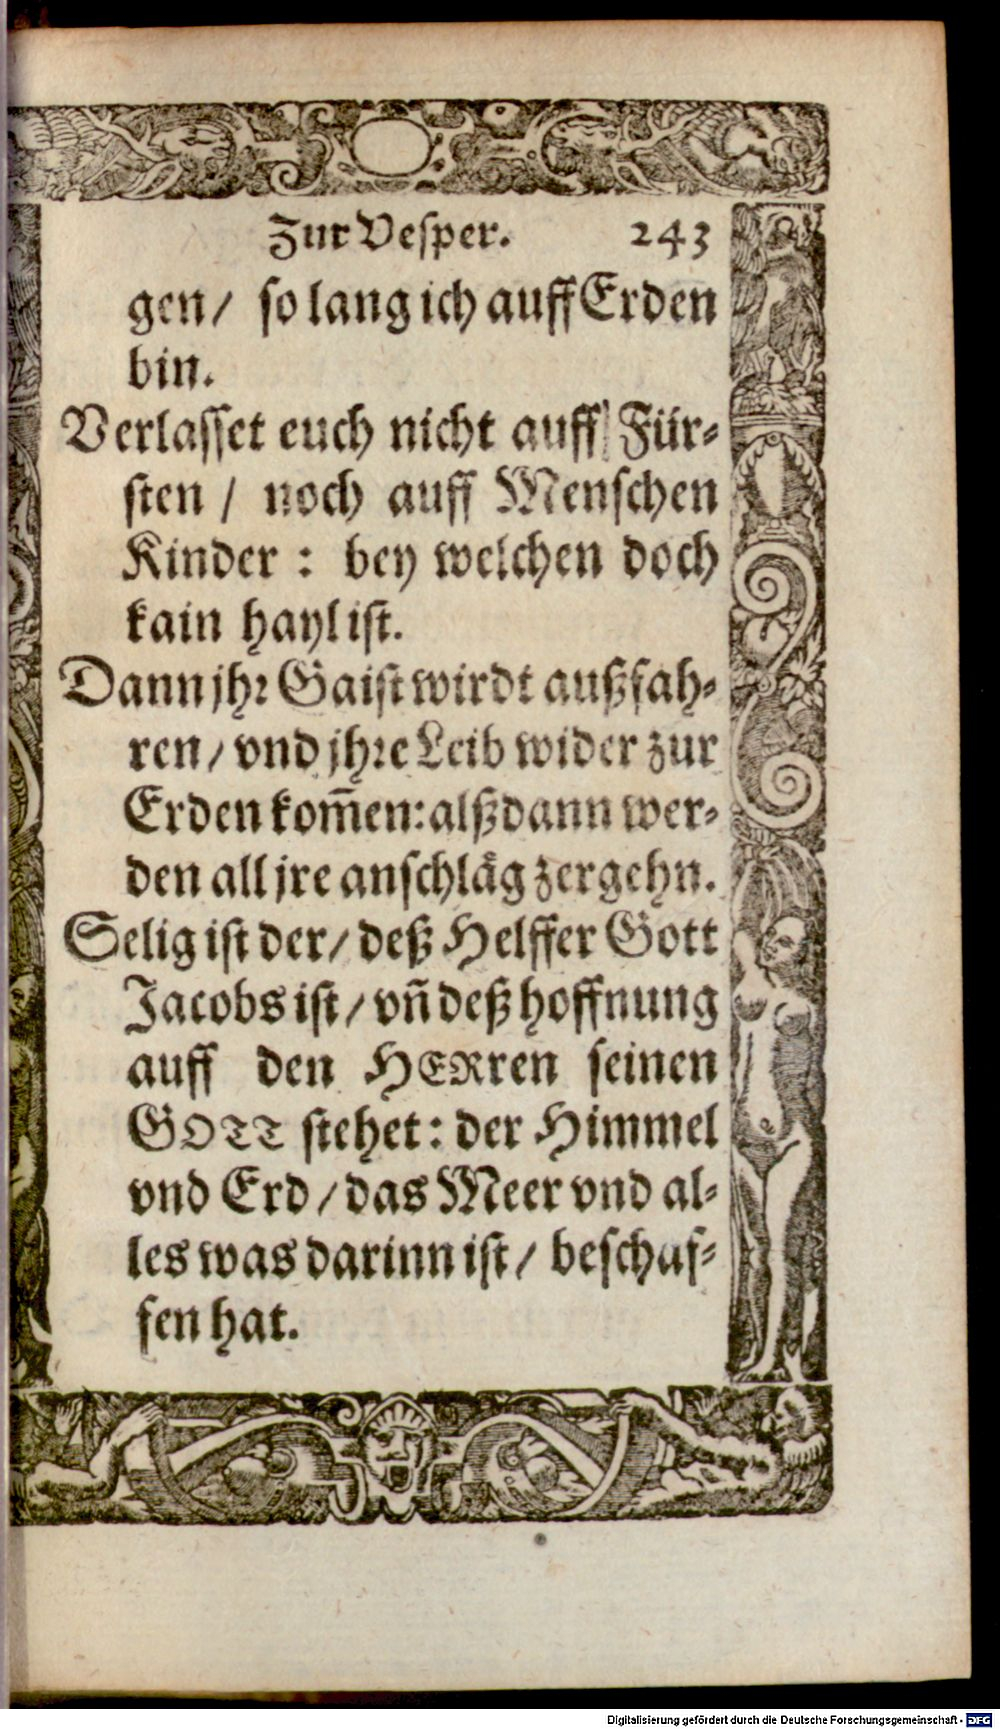 Zur Vesper. 243
gen/ so lang ich auff Erden
bin.
Verlasset euch nicht auff Für-
sten / noch auff Menschen
Kinder : bey welchen doch
kain hayl ist.
Dann jhr Gaist wirdt außfah-
ren/ vnd jhre Leib wider zur
Erden kom̃en: alßdann wer-
den all jre anschläg zergehn.
Selig ist der/ deß Helffer Gott
Jacobs ist/ vn̄ deß hoffnung
auff den HERren seinen
GOTT stehet: der Himmel
vnd Erd/ das Meer vnd al-
les was darinn ist/ beschaf-
fen hat.
Digitalisierung gefördert durch die Deutsche Forschungsgemeinschaft - DFG